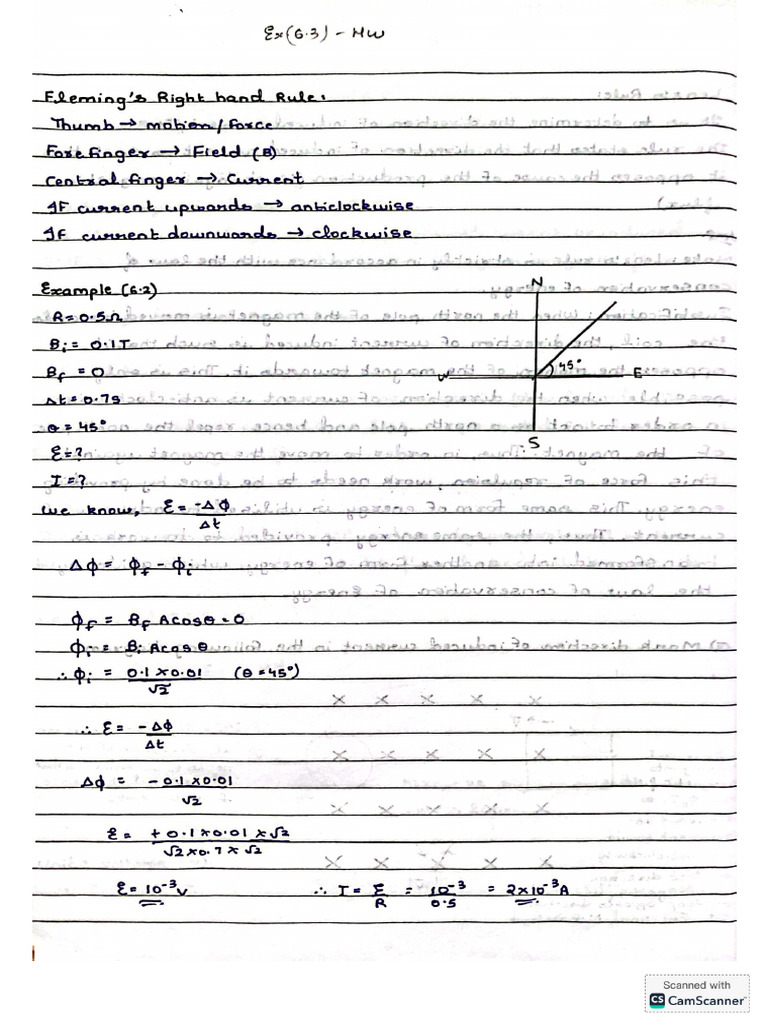 Ex(6.3) - HW
Fleming's Right hand Rule:
Thumb → motion/force
Forefinger → Field (B)
Central finger → Current
If current upwards → anticlockwise
If current downwards → clockwise
Example (6.2)
R = 0.5Ω
Bi = 0.1T
Bf = 0
Δt = 0.7s
θ = 45°
ε = ?
I = ?
N
W
E
45°
S
we know, ε = -Δϕ/Δt
Δϕ = ϕf - ϕi
ϕf = Bf Acosθ = 0
ϕi = Bi Acosθ
∴ ϕi = 0.1×0.01/√2 (θ = 45°)
∴ ε = -Δϕ/Δt
Δϕ = -0.1×0.01/√2
ε = +0.1×0.01×√2/√2×0.7×√2
ε = 10⁻³V ∴ I = ε/R = 10⁻³/0.5 = 2×10⁻³A
Scanned with
CS CamScanner